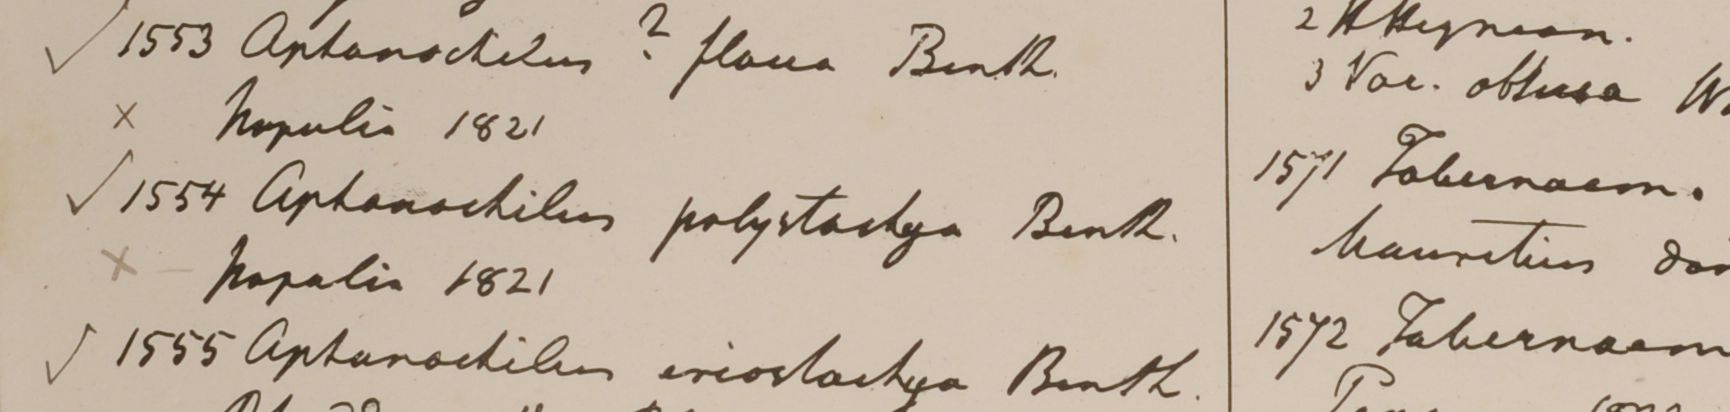 ✓ 1553 Aphanochilus ? flava Benth.
× Napalia 1821
✓ 1554 Aphanochilus polystachya Benth.
× Napalia 1821
✓ 1555 Aphanochilus eriostachya Benth.
2 H Heynean.
3 Var. obtusa W
1571 Tabernaem.
Mauritius
1572 Tabernaem